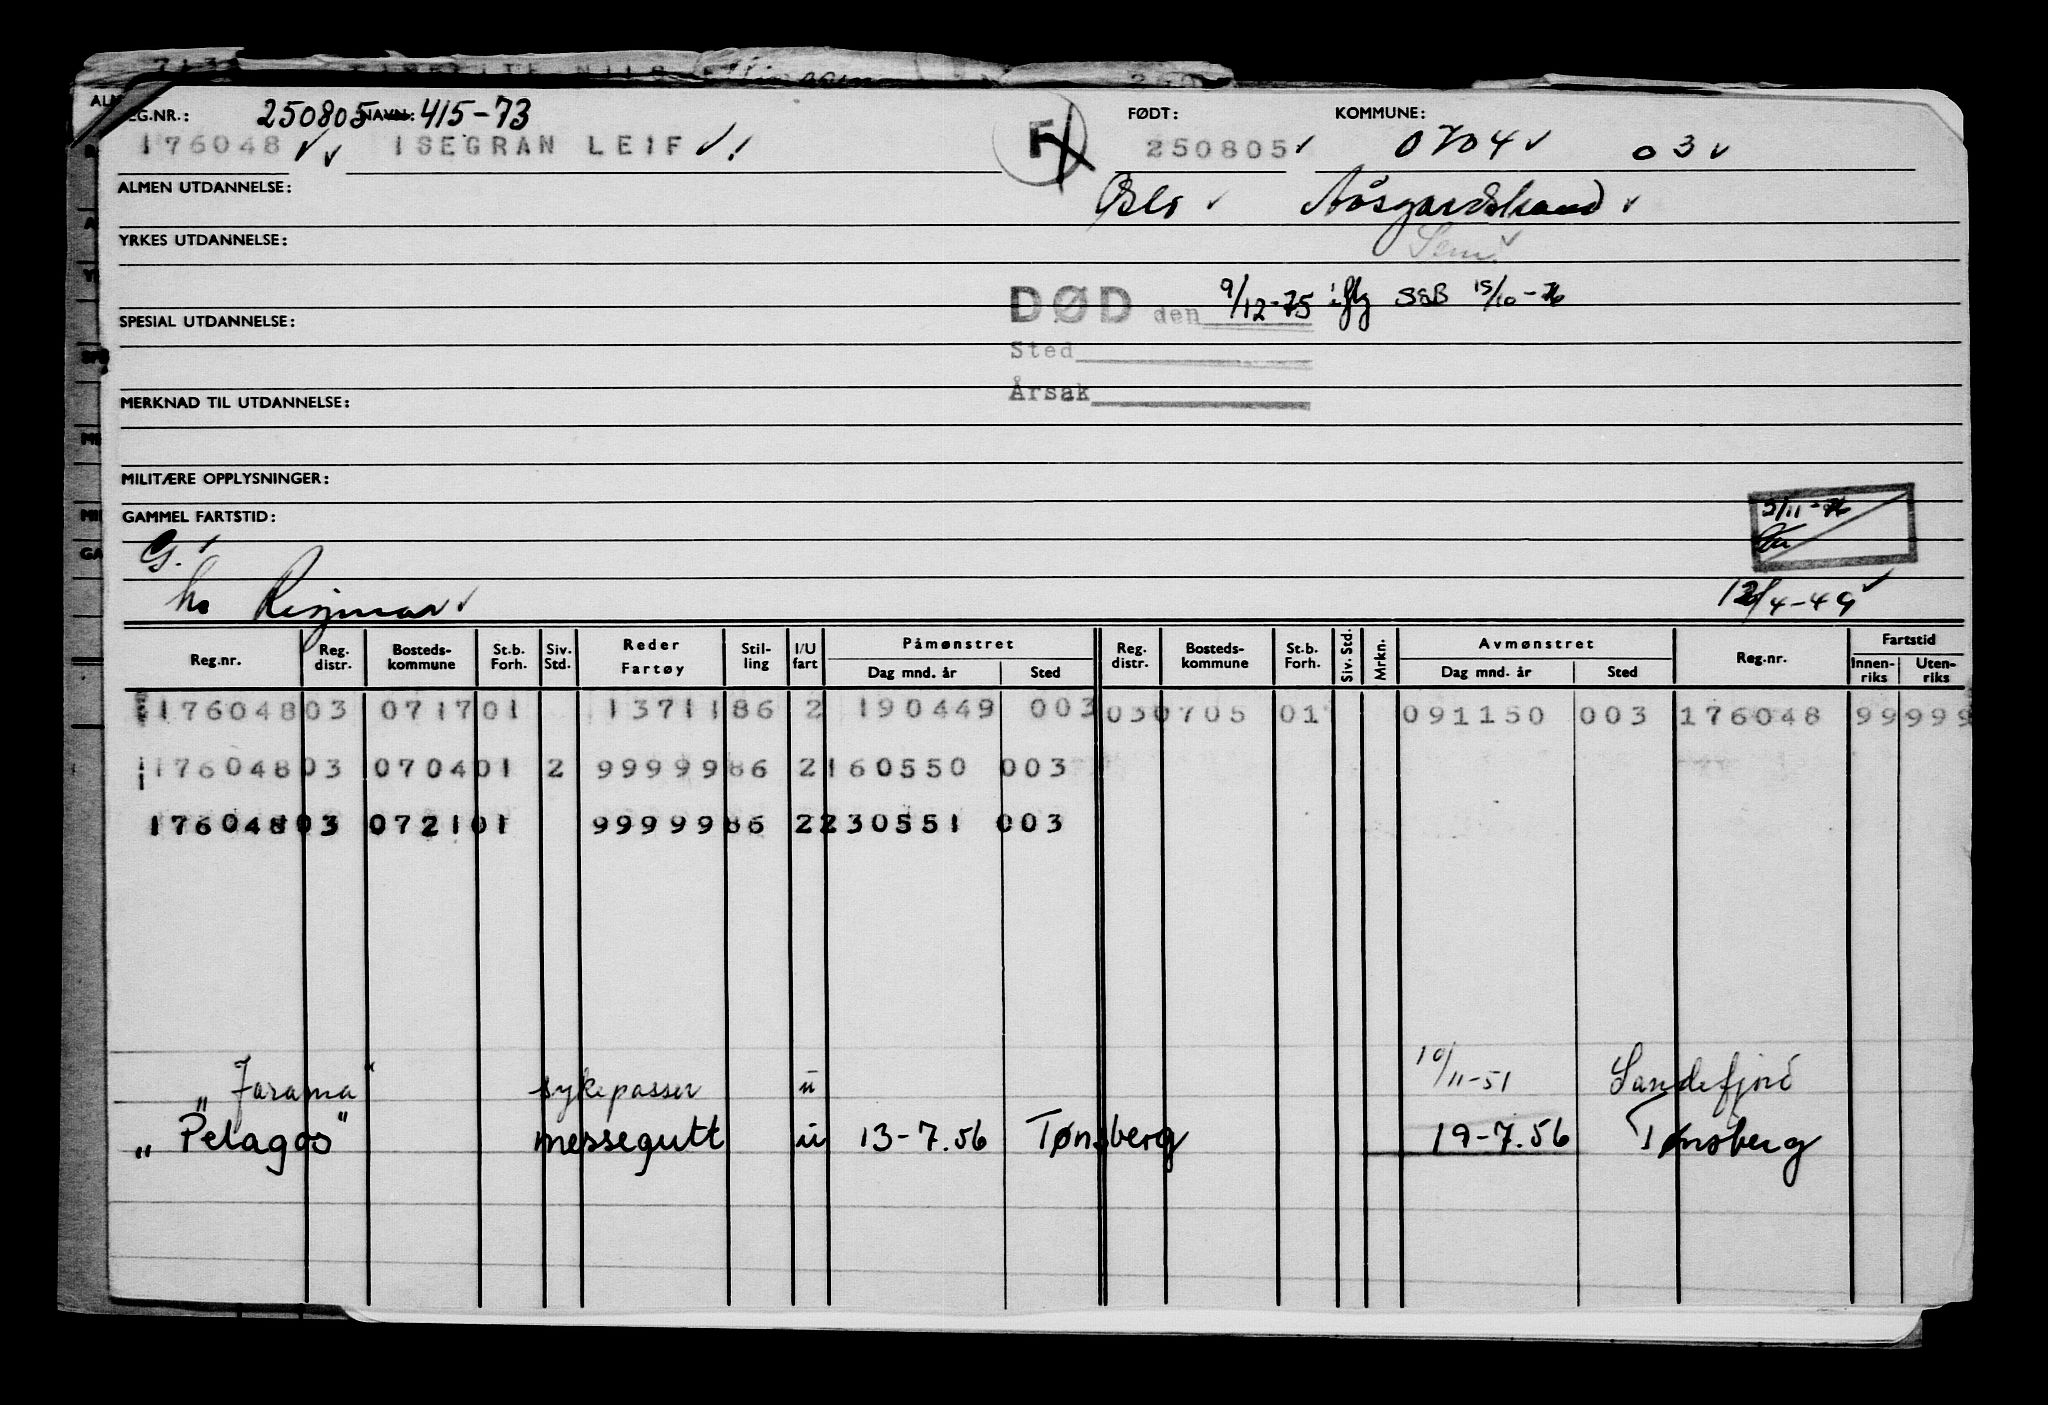 REG.NR.: 250805 NAVN: 415-73 FØDT: KOMMUNE:
176048 ISEGRAN LEIF F 250805 0704 03
ALMEN UTDANNELSE: Oslo Åsgardstrand
YRKES UTDANNELSE: Sem
DØD den 9/12-75 iflg SSB 15/10-76
SPESIAL UTDANNELSE:
Sted
Årsak
MERKNAD TIL UTDANNELSE:
MILITÆRE OPPLYSNINGER:
GAMMEL FARTSTID:
G.
12/4-49
Reg.nr. Reg. distr. Bosteds-kommune St.b. Forh. Siv. Std. Reder Fartøy Stil-ling I/U fart Påmønstret Dag mnd. år Sted Reg. distr. Bosteds-kommune St.b. Forh. Siv. Std. Mrkn. Avmønstret Dag mnd. år Sted Reg.nr. Fartstid Innen-riks Uten-riks
176048 03 0717 01 13711 86 2 190449 003 03 0705 01 091150 003 176048 99 999
176048 03 0704 01 2 99999 86 2 160550 003
176048 03 0721 01 99999 86 2 230551 003
„Jarama" sykepasser u 10/11-51 Sandefjord
„Pelagos" messegutt u 13-7.56 Tønsberg 19-7.56 Tønsberg